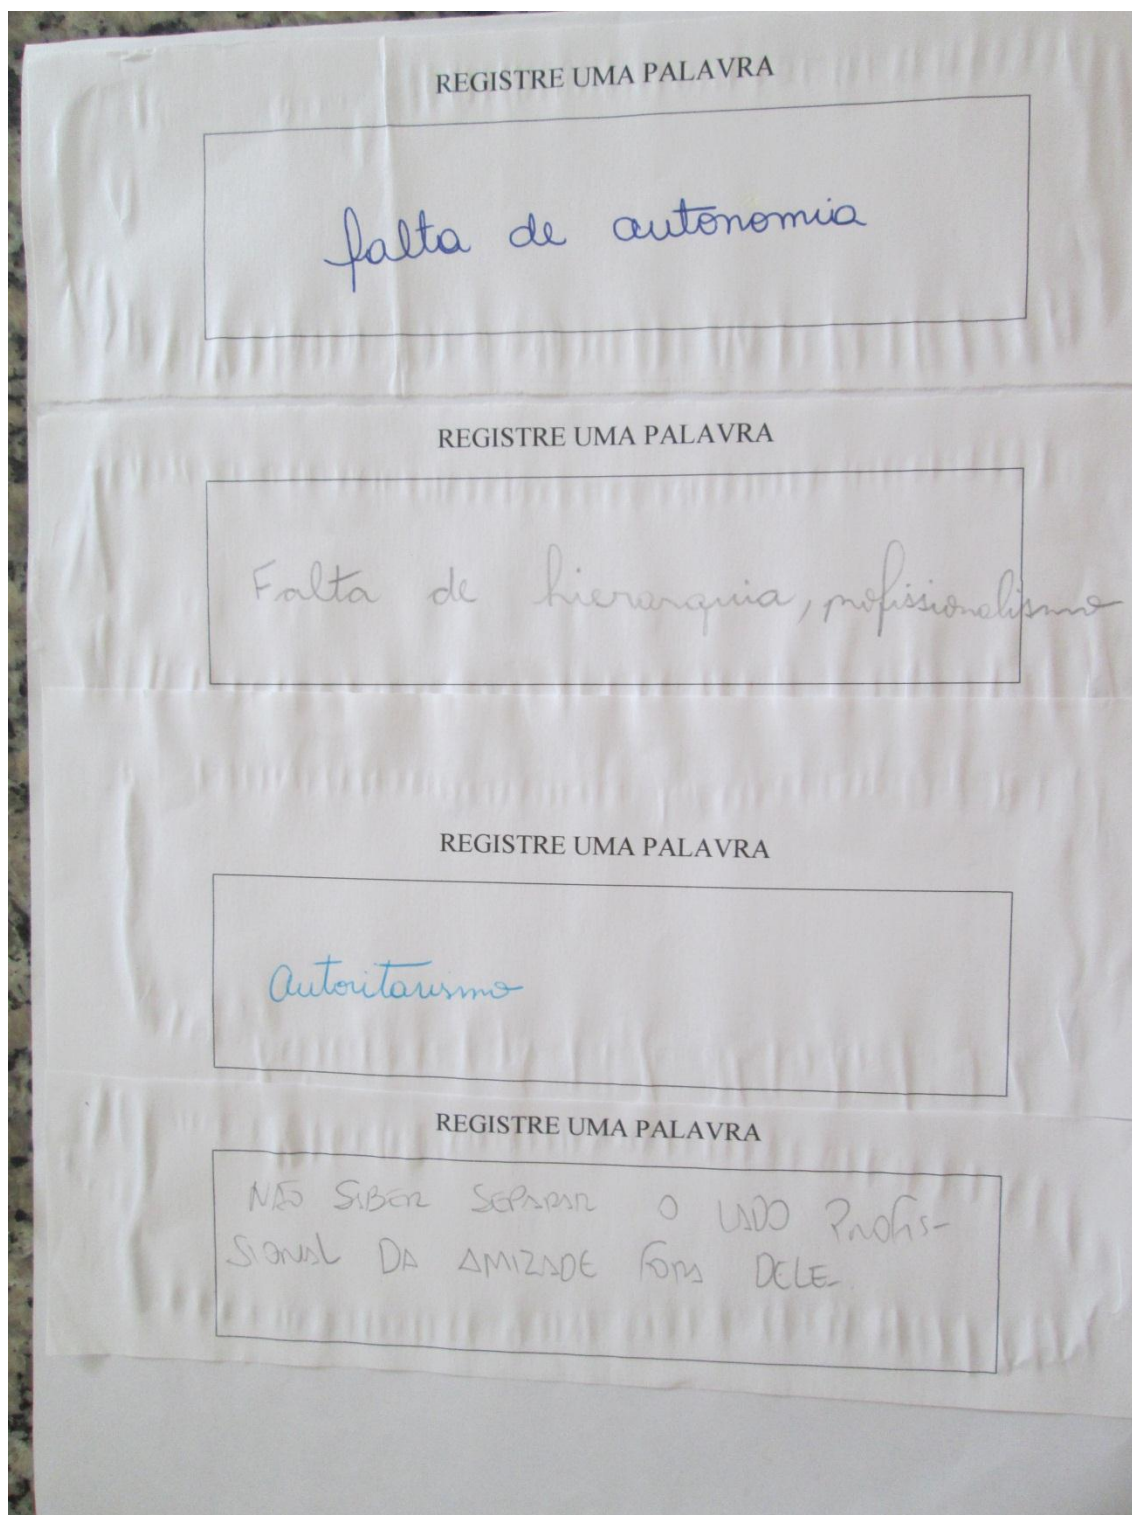 REGISTRE UMA PALAVRA
falta de autonomia
REGISTRE UMA PALAVRA
Falta de hierarquia, profissionalismo
REGISTRE UMA PALAVRA
Autoritarismo
REGISTRE UMA PALAVRA
NÃO SABER SEPARAR O LADO PROFIS-
SIONAL DA AMIZADE FORA DELE